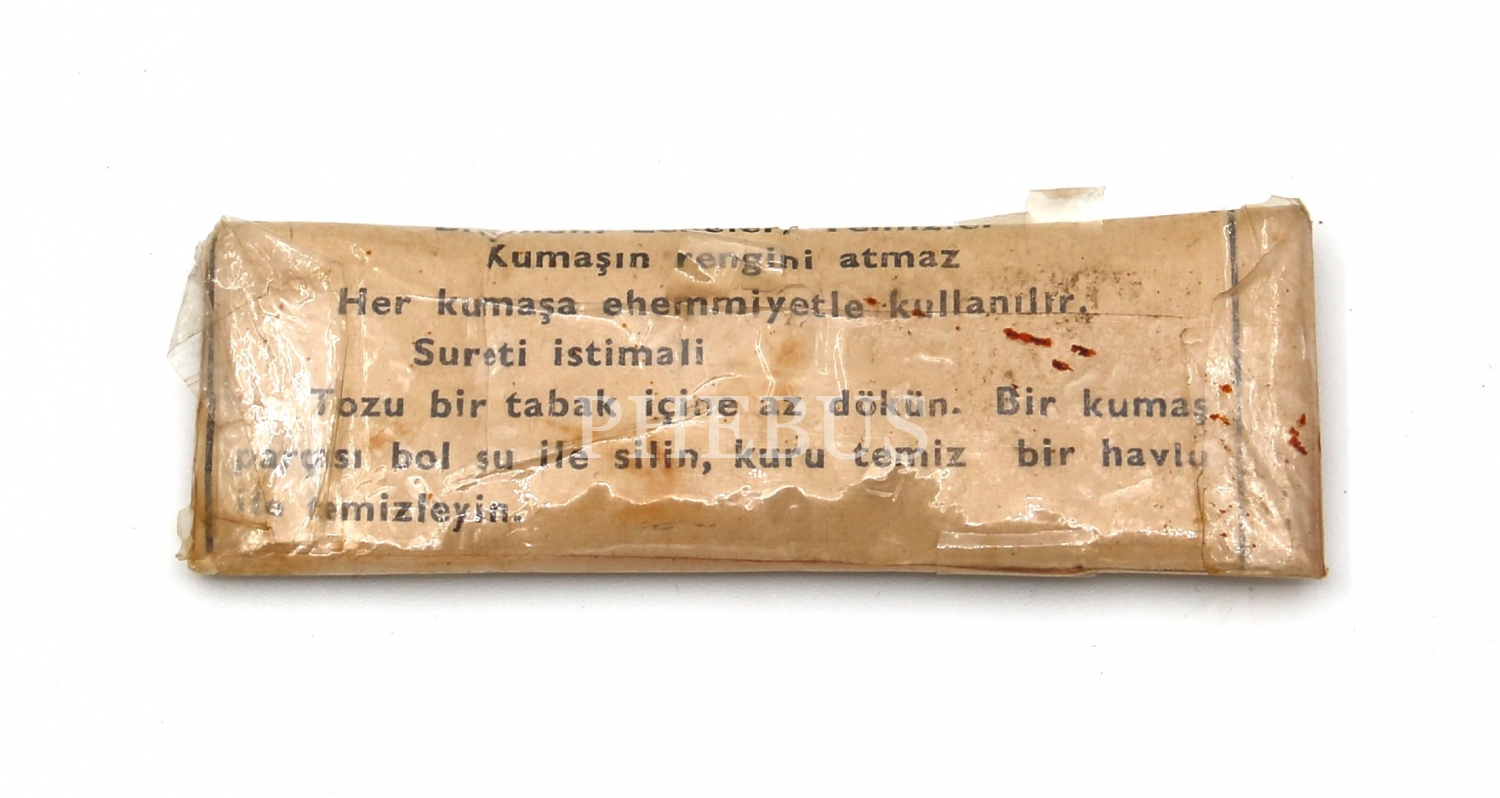 Kumaşın rengini atmaz
Her kumaşa ehemmiyetle kullanılır.
Sureti istimali
Tozu bir tabak içine az dökün. Bir kumaş
parçası bol su ile silin, kuru temiz bir havlu
ile temizleyin.
PHEBUS